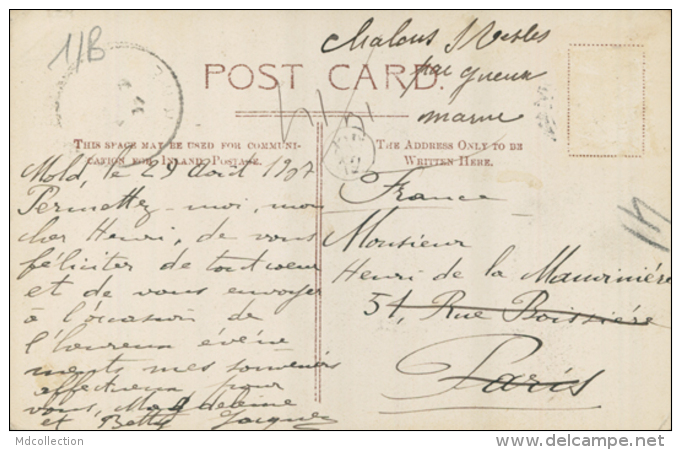 11B
Chalons s/ Vesles
par Gueux
Marne
POST CARD.
THIS SPACE MAY BE USED FOR COMMUNI-
CATION FOR INLAND POSTAGE.
THE ADDRESS ONLY TO BE
WRITTEN HERE.
Mold, le 29 Avril 1907
Permettez-moi, mon
cher Henri, de vous
féliciter de tout coeur
et de vous envoyer
à l'occasion de
l'heureux événe
ments mes souvenirs
affectueux pour
vous, Magdeleine
et Betty Jacques
France
Monsieur
Henri de la Mauvinière
51, Rue Boissière
Paris
Mdcollection
delcampe.net